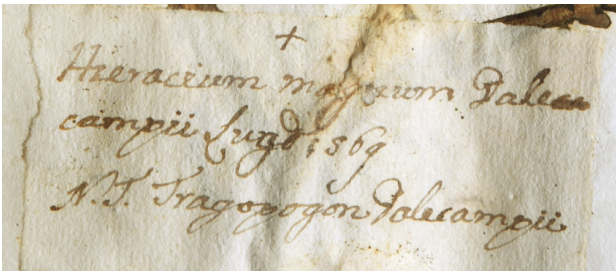 +
Hieracium magnum Dale
campii Lugd: 569
N.T. Tragopogon Dalecampii